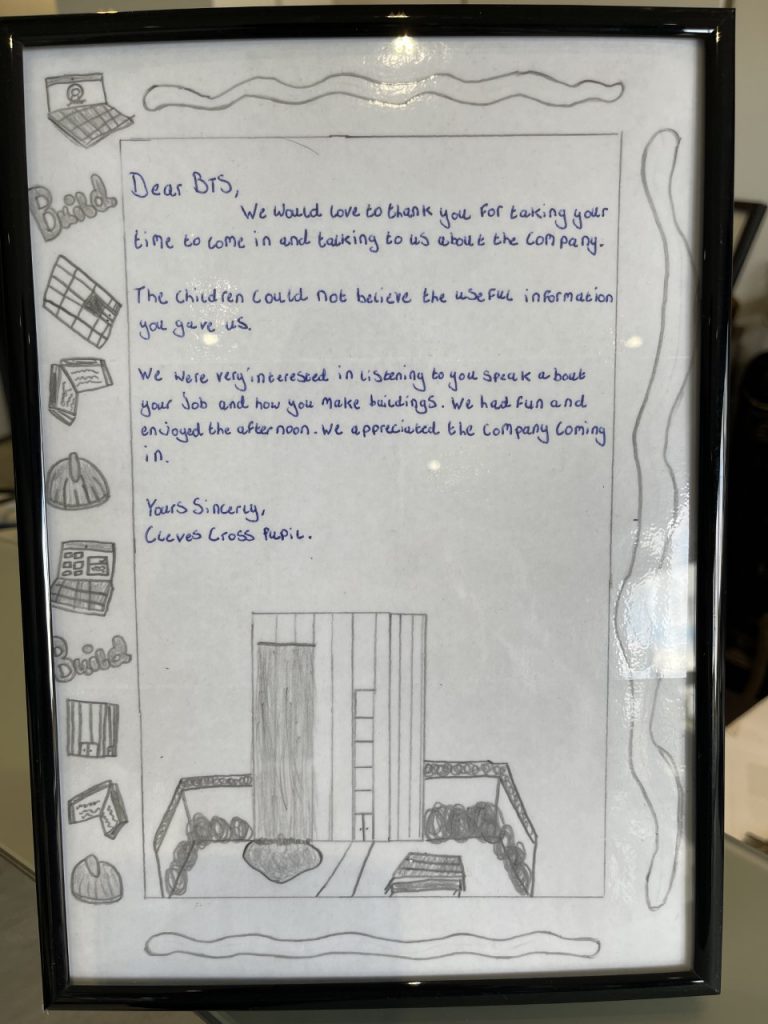 Dear BTS,
We would love to thank you for taking your
time to come in and talking to us about the company.
The children could not believe the useful information
you gave us.
We were very interested in listening to you speak about
your job and how you make buildings. We had fun and
enjoyed the afternoon. We appreciated the company coming
in.
Yours Sincerly,
Cleves Cross Pupil.
Build
Build